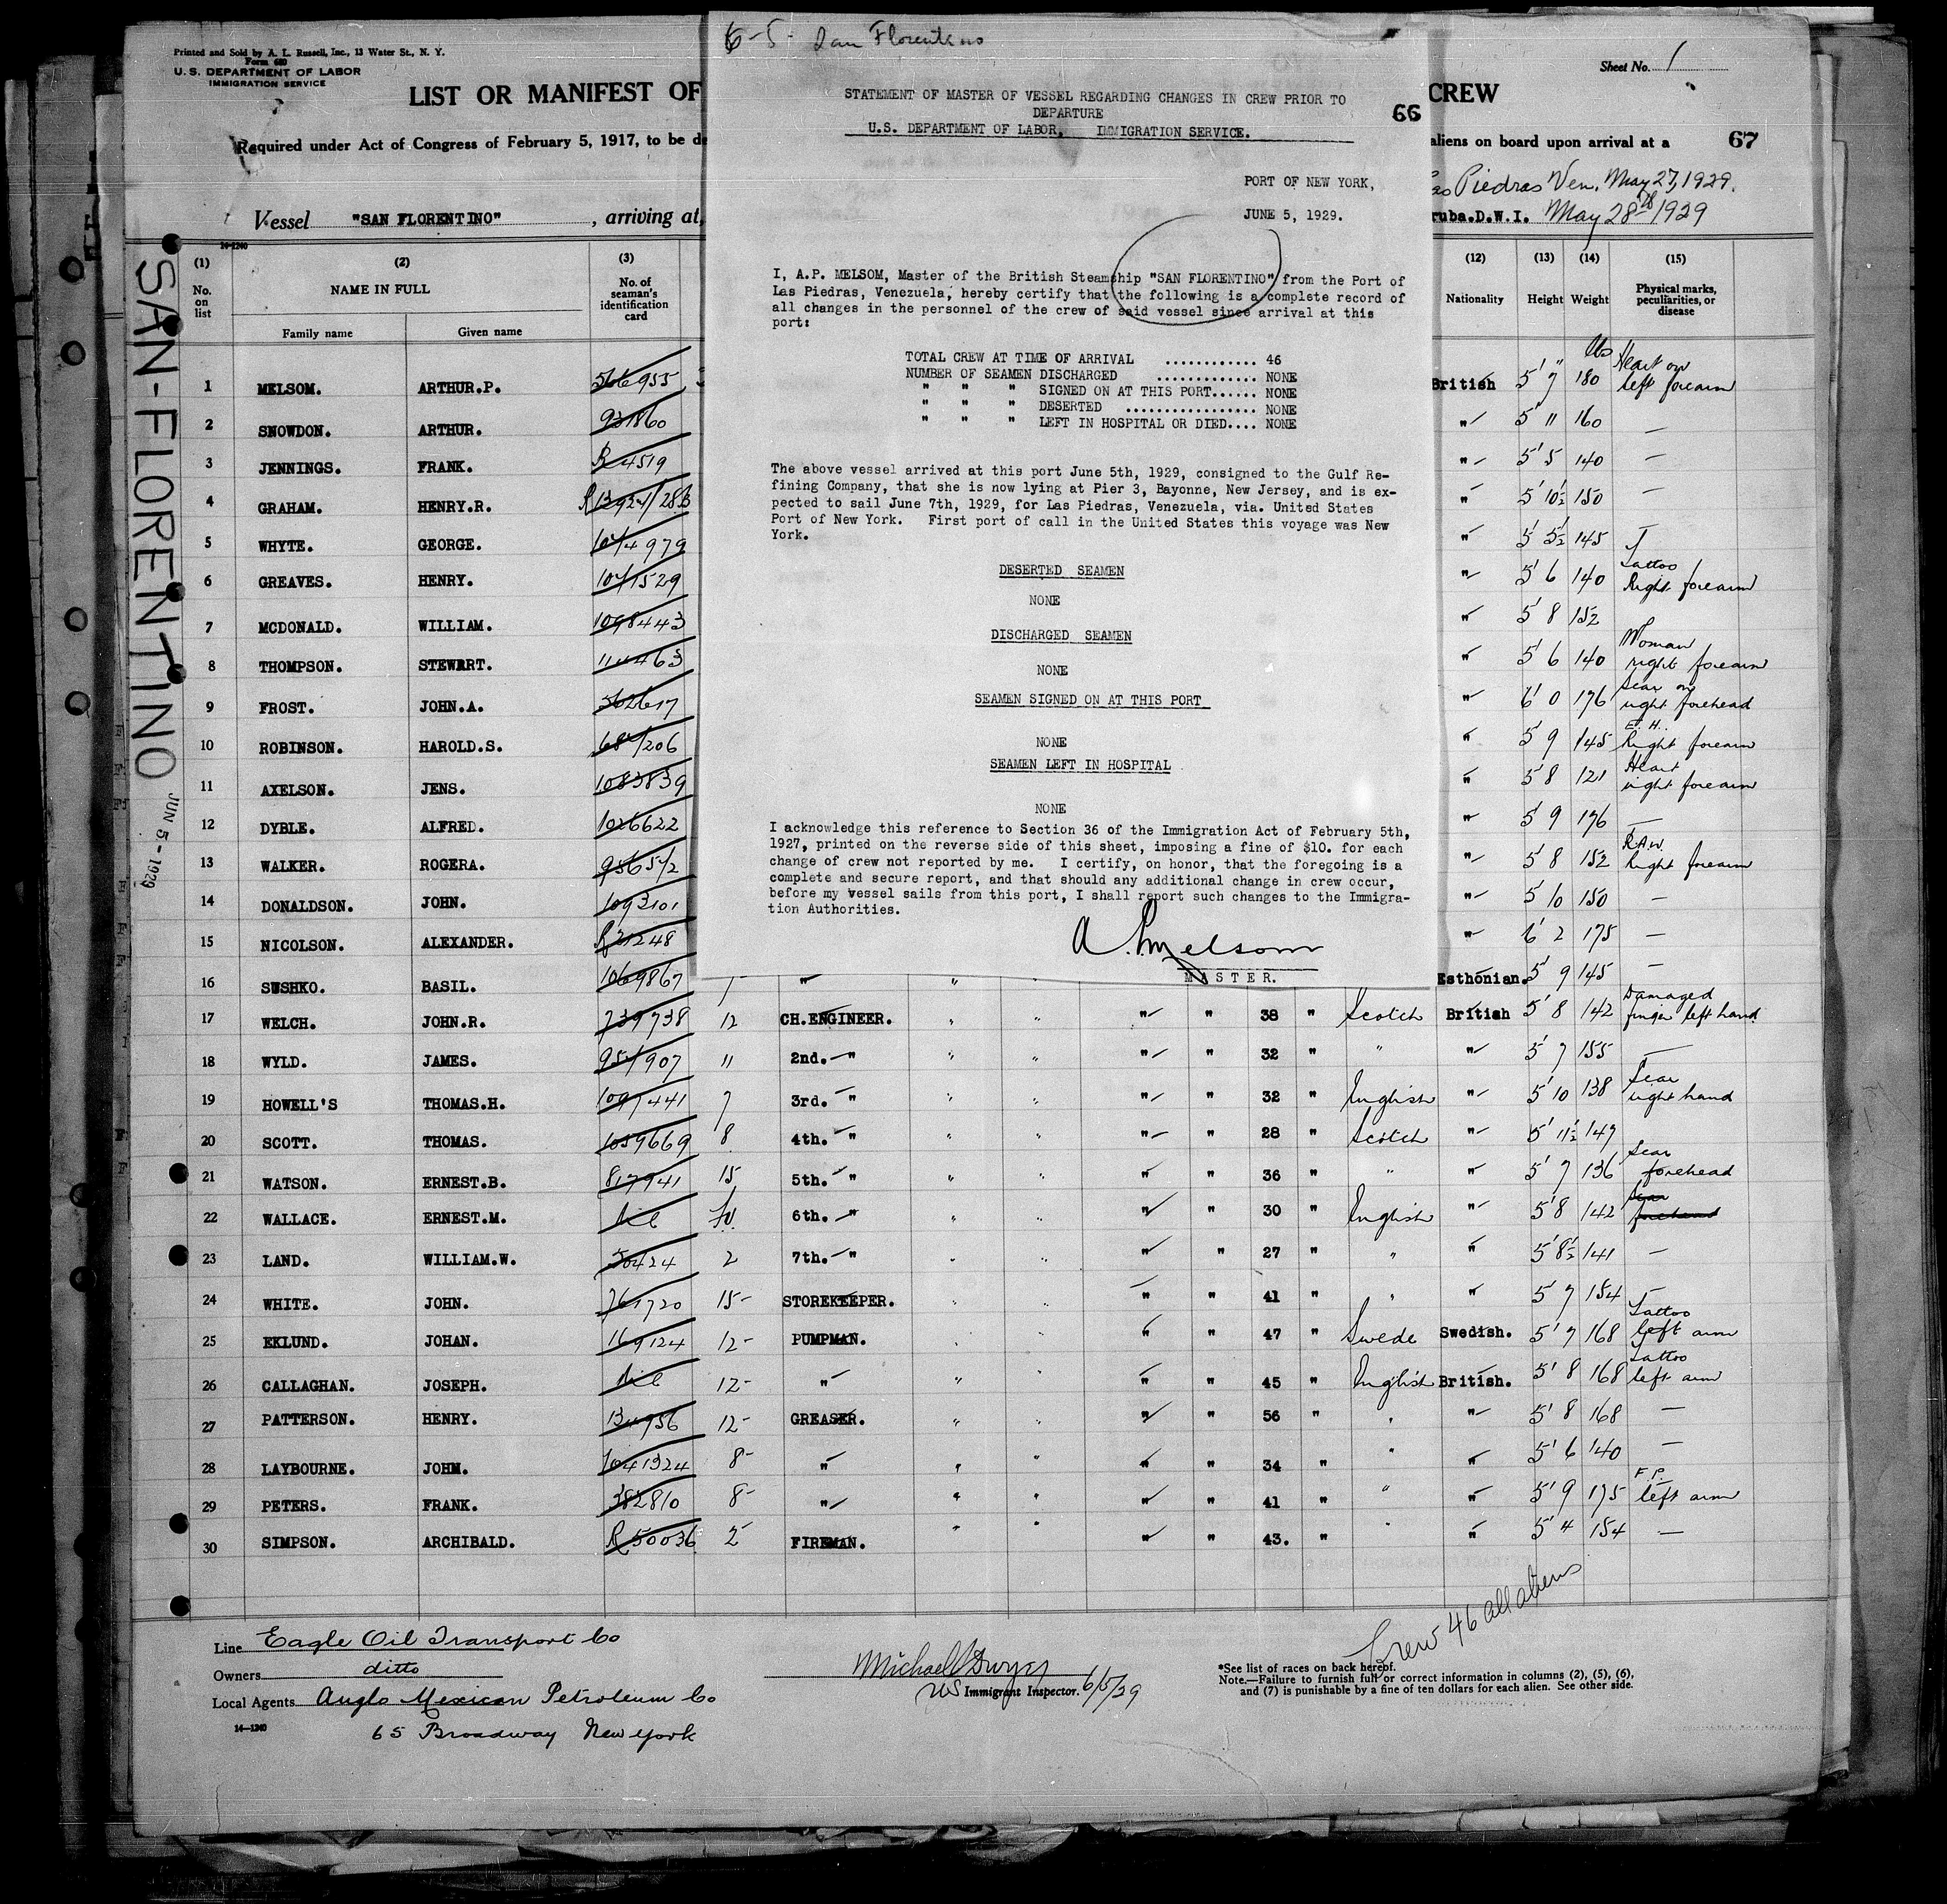 Printed and Sold by A. L. Russell, Inc., 13 Water St., N. Y.
Form 680
U. S. DEPARTMENT OF LABOR
IMMIGRATION SERVICE
Sheet No. 1
LIST OR MANIFEST OF
CREW
Required under Act of Congress of February 5, 1917, to be de
aliens on board upon arrival at a
67
Piedras Ven. May 27, 1929.
Vessel "SAN FLORENTINO", arriving at,
ruba.D.W.I. May 28th 1929
SAN-FLORENTINO
JUN 5 - 1929
6-5- San Florentino
STATEMENT OF MASTER OF VESSEL REGARDING CHANGES IN CREW PRIOR TO
DEPARTURE
66
U.S. DEPARTMENT OF LABOR, IMMIGRATION SERVICE.
PORT OF NEW YORK,
JUNE 5, 1929.
I, A.P. MELSOM, Master of the British Steamship "SAN FLORENTINO" from the Port of
Las Piedras, Venezuela, hereby certify that the following is a complete record of
all changes in the personnel of the crew of said vessel since arrival at this
port:
TOTAL CREW AT TIME OF ARRIVAL ............ 46
NUMBER OF SEAMEN DISCHARGED ............. NONE
" " " SIGNED ON AT THIS PORT...... NONE
" " " DESERTED ................. NONE
" " " LEFT IN HOSPITAL OR DIED.... NONE
The above vessel arrived at this port June 5th, 1929, consigned to the Gulf Re-
fining Company, that she is now lying at Pier 3, Bayonne, New Jersey, and is ex-
pected to sail June 7th, 1929, for Las Piedras, Venezuela, via. United States
Port of New York. First port of call in the United States this voyage was New
York.
DESERTED SEAMEN
NONE
DISCHARGED SEAMEN
NONE
SEAMEN SIGNED ON AT THIS PORT
NONE
SEAMEN LEFT IN HOSPITAL
NONE
I acknowledge this reference to Section 36 of the Immigration Act of February 5th,
1927, printed on the reverse side of this sheet, imposing a fine of $10. for each
change of crew not reported by me. I certify, on honor, that the foregoing is a
complete and secure report, and that should any additional change in crew occur,
before my vessel sails from this port, I shall report such changes to the Immigra-
tion Authorities.
A. P. Melsom
MASTER.
14-1240
(1) (2) (3) (12) (13) (14) (15)
No. on list NAME IN FULL No. of seaman's identification card Nationality Height Weight Physical marks, peculiarities, or disease
Family name Given name
1 MELSOM. ARTHUR.P. 566955 British 5' 7" 180 lbs Heart on left forearm
2 SNOWDON. ARTHUR. 931860 " 5' 11 160 —
3 JENNINGS. FRANK. R 4519 " 5' 5 140 —
4 GRAHAM. HENRY.R. " 5' 10½ 150 —
5 WHYTE. GEORGE. 1044979 " 5' 5½ 145 —
6 GREAVES. HENRY. 1041529 " 5' 6 140 Tattoo Right forearm
7 MCDONALD. WILLIAM. 1098443 " 5' 8 152
8 THOMPSON. STEWART. " 5' 6 140 Woman right forearm
9 FROST. JOHN.A. 362617 " 6' 0 176 Scar on right forehead
10 ROBINSON. HAROLD.S. " 5' 9 145 E. H. Right forearm
11 AXELSON. JENS. 1083839 " 5' 8 121 Heart right forearm
12 DYBLE. ALFRED. 1026622 " 5' 9 176 —
13 WALKER. ROGERA. " 5' 8 152 R.A.W. Right forearm
14 DONALDSON. JOHN. 1093101 " 5' 10 150 —
15 NICOLSON. ALEXANDER. R 21248 " 6' 2 175 —
16 SUSHKO. BASIL. 1069867 " " Esthonian. 5' 9 145 —
17 WELCH. JOHN.R. 739738 12 CH.ENGINEER. " " " " 38 " Scotch British 5' 8 142 Damaged finger left hand
18 WYLD. JAMES. 11 2nd. " " " " " 32 " " " 5' 7 155 —
19 HOWELL'S THOMAS.H. 1097441 7 3rd. " " " " " 32 " English " 5' 10 138 Scar right hand
20 SCOTT. THOMAS. 1059669 8 4th. " " " " " 28 " Scotch " 5' 11½ 147
21 WATSON. ERNEST.B. 817941 15 5th. " " " " " 36 " " " 5' 7 136 Scar forehead
22 WALLACE. ERNEST.M. Nil 6th. " " " " " 30 " English " 5' 8 142 Scar forehead
23 LAND. WILLIAM.W. 50424 2 7th. " " " " " 27 " " " 5' 8½ 141 —
24 WHITE. JOHN. 761720 15 STOREKEEPER. " " " " 41 " " " 5' 7 154 —
25 EKLUND. JOHAN. 169124 12 PUMPMAN. " " " " 47 " Swede Swedish. 5' 7 168 Tattoo left arm
26 CALLAGHAN. JOSEPH. Nil 12 " " " " " 45 " English British. 5' 8 168 Tattoo left arm
27 PATTERSON. HENRY. 12 GREASER. " " " " 56 " " " 5' 8 168 —
28 LAYBOURNE. JOHN. 1041324 8 " " " " " 34 " " " 5' 6 140 —
29 PETERS. FRANK. 382810 8 " " " " " 41 " " " 5' 9 175 F. P. left arm
30 SIMPSON. ARCHIBALD. R 50036 2 FIREMAN. " " " " 43. " " " 5' 4 154 —
Crew 46 all aliens
Line Eagle Oil Transport Co
Owners ditto
Local Agents Anglo Mexican Petroleum Co
65 Broadway New York
14—1240
Michael Dwyer
US Immigrant Inspector. 6/5/29
*See list of races on back hereof.
Note.—Failure to furnish full or correct information in columns (2), (5), (6),
and (7) is punishable by a fine of ten dollars for each alien. See other side.